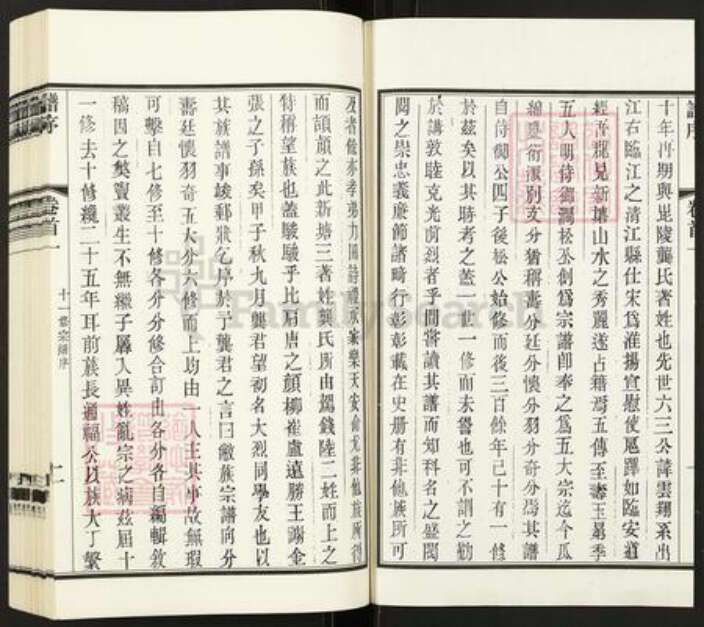 譜序
卷首一
十年冉期與毘陵龔氏著姓也先世六三公諱雲翔系出
江右臨江之清江縣仕宋為淮揚宣慰使扈蹕如臨安道
經晉郡見新塘山水之秀麗遂占籍焉五傳至壽玉晜季
五人明待御潤松公創為宗譜即奉之為五大宗迄今瓜
綿慶衍派別支分猶稱壽分廷分懷分羽分奇分焉其譜
自侍御公四子後松公始修而後三百餘年已十有一修
於茲矣以其時考之蓋一世一修而未嘗也可不謂之勤
於講敦睦克光前烈者乎間嘗讀其譜而知科名之盛閥
閱之崇忠義廉節諸畸行彰彰載在史册有非他族所可
及者像亦孝弟力田詩禮承家樂天安命尤非他族所得
而頡頏之此新塘三著姓龔氏所由駕錢陸二姓而上之
特稱望族也蓋駸駸乎比肩唐之顏柳崔盧遠勝王謝金
張之子孫矣甲子秋九月龔君望初名大烈同學友也以
其族譜事竣郵狀乞序於予龔君之言曰敝族宗譜向分
壽廷懷羽奇五大分六修而上均由一人主其事故無瑕
可擊自七修至十修各分分修合訂由各分各自編輯敘
稿因之獘竇叢生不無繼子孱入異姓亂宗之病茲屆十
一修去十修纔二十五年耳前族長通福公以族大丁繁
譜序
卷首一
十一修宗譜序
二
FamilySearch